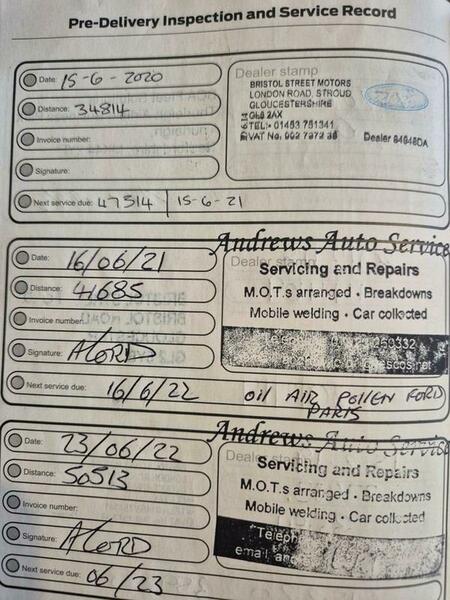 Pre-Delivery Inspection and Service Record
Date: 15-6-2020
Distance: 34814
Invoice number:
Signature:
Next service due: 47314 | 15-6-21
Dealer stamp
BRISTOL STREET MOTORS
LONDON ROAD, STROUD
GLOUCESTERSHIRE
GL5 2AX
TEL: 01453 751341
VAT No. 902 7972 36
Dealer 84648DA
Date: 16/06/21
Distance: 41685
Invoice number:
Signature:
Next service due: 16/6/22
Andrews Auto Service
Dealer stamp
Servicing and Repairs
M.O.T.s arranged • Breakdowns
Mobile welding • Car collected
OIL AIR POLLEN FORD
PARTS
Date: 23/06/22
Distance: 50513
Invoice number:
Signature:
Next service due: 06/23
Andrews Auto Service
Dealer
Servicing and Repairs
M.O.T.s arranged • Breakdowns
Mobile welding • Car collected
Teleph
email: an